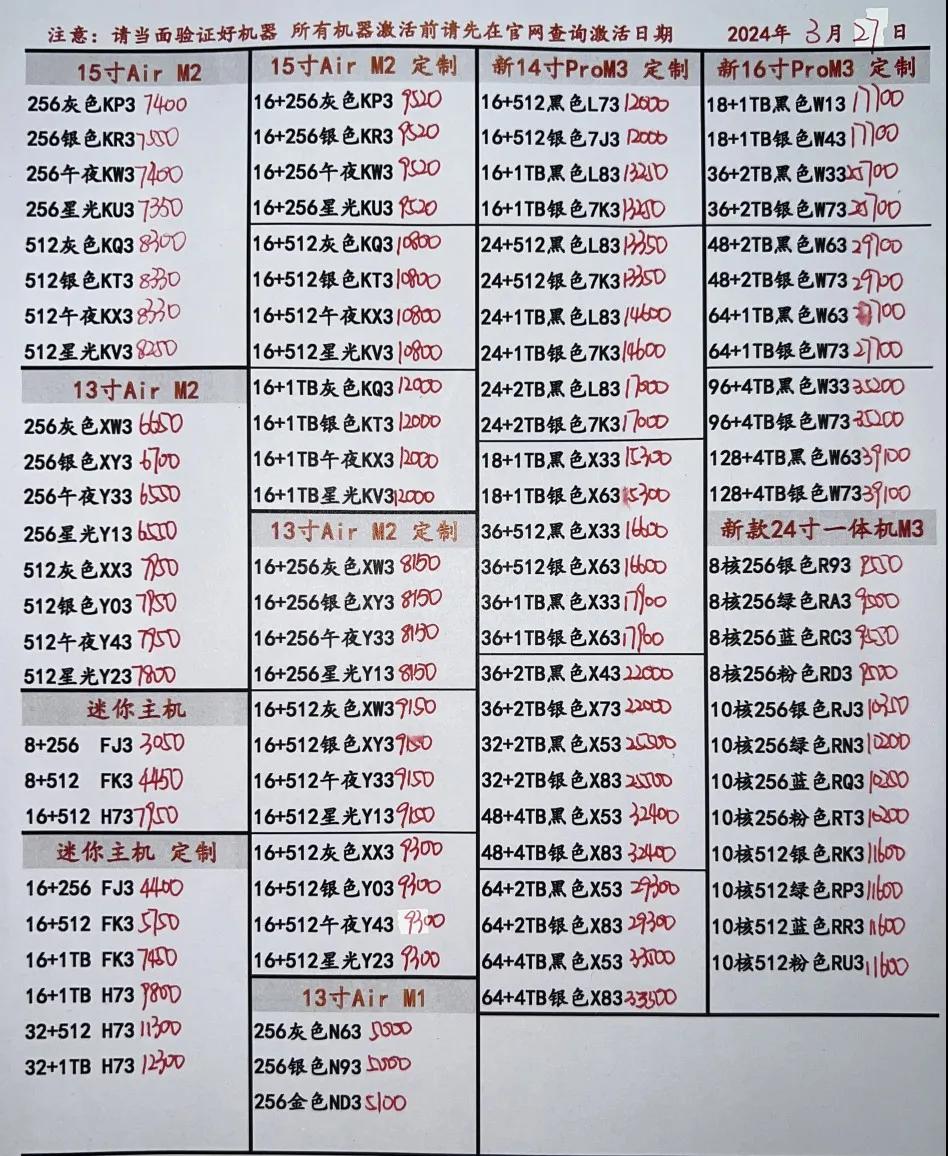 注意：请当面验证好机器 所有机器激活前请先在官网查询激活日期 2024年 3月27日
15寸Air M2
256灰色KP3 7400
256银色KR3 7550
256午夜KW3 7400
256星光KU3 7350
512灰色KQ3 8300
512银色KT3 8330
512午夜KX3 8330
512星光KV3 8250
13寸Air M2
256灰色XW3 6650
256银色XY3 6700
256午夜Y33 6550
256星光Y13 6550
512灰色XX3 7950
512银色Y03 7950
512午夜Y43 7950
512星光Y23 7800
迷你主机
8+256 FJ3 3050
8+512 FK3 4450
16+512 H73 7950
迷你主机 定制
16+256 FJ3 4400
16+512 FK3 5150
16+1TB FK3 7450
16+1TB H73 9800
32+512 H73 11300
32+1TB H73 12300
15寸Air M2 定制
16+256灰色KP3 9520
16+256银色KR3 9520
16+256午夜KW3 9520
16+256星光KU3 9520
16+512灰色KQ3 10800
16+512银色KT3 10800
16+512午夜KX3 10800
16+512星光KV3 10800
16+1TB灰色KQ3 12000
16+1TB银色KT3 12000
16+1TB午夜KX3 12000
16+1TB星光KV3 12000
13寸Air M2 定制
16+256灰色XW3 8150
16+256银色XY3 8150
16+256午夜Y33 8150
16+256星光Y13 8150
16+512灰色XW3 9150
16+512银色XY3 9150
16+512午夜Y33 9150
16+512星光Y13 9150
16+512灰色XX3 9300
16+512银色Y03 9300
16+512午夜Y43 9300
16+512星光Y23 9300
13寸Air M1
256灰色N63 5000
256银色N93 5000
256金色ND3 5100
新14寸ProM3 定制
16+512黑色L73 12000
16+512银色7J3 12000
16+1TB黑色L83 13250
16+1TB银色7K3 13250
24+512黑色L83 13350
24+512银色7K3 13350
24+1TB黑色L83 14600
24+1TB银色7K3 14600
24+2TB黑色L83 17000
24+2TB银色7K3 17000
18+1TB黑色X33 15300
18+1TB银色X63 15300
36+512黑色X33 16600
36+512银色X63 16600
36+1TB黑色X33 17900
36+1TB银色X63 17900
36+2TB黑色X43 22000
36+2TB银色X73 22000
32+2TB黑色X53 25500
32+2TB银色X83 25500
48+4TB黑色X53 32400
48+4TB银色X83 32400
64+2TB黑色X53 29300
64+2TB银色X83 29300
64+4TB黑色X53 33500
64+4TB银色X83 33500
新16寸ProM3 定制
18+1TB黑色W13 17700
18+1TB银色W43 17700
36+2TB黑色W33 25700
36+2TB银色W73 25700
48+2TB黑色W63 29700
48+2TB银色W73 29700
64+1TB黑色W63 27700
64+1TB银色W73 27700
96+4TB黑色W33 35200
96+4TB银色W73 35200
128+4TB黑色W63 39100
128+4TB银色W73 39100
新款24寸一体机M3
8核256银色R93
8核256绿色RA3 9000
8核256蓝色RC3
8核256粉色RD3
10核256银色RJ3 10350
10核256绿色RN3 10200
10核256蓝色RQ3 10250
10核256粉色RT3 10200
10核512银色RK3 11600
10核512绿色RP3 11600
10核512蓝色RR3 11600
10核512粉色RU3 11600